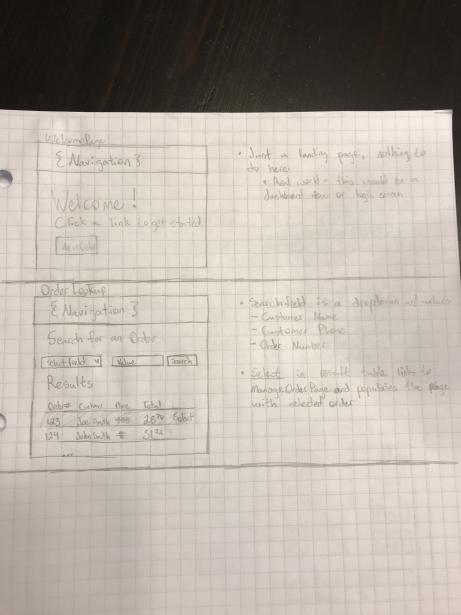 Welcome Page
{ Navigation }
Welcome!
Click a link to get started
• Just a landing page, nothing to
do here
• Real world - this would be a
dashboard view or login screen
Order Lookup
{ Navigation }
Search for an Order
Value
Search
Results
Order# Phone Total
123 Joe Smith Select
124 John Smith #
...
• Search field is a dropdown w/ values
- Customer Name
- Customer Phone
- Order Number
• Select in result table links to
Manage Order Page and populates the page
with selected order